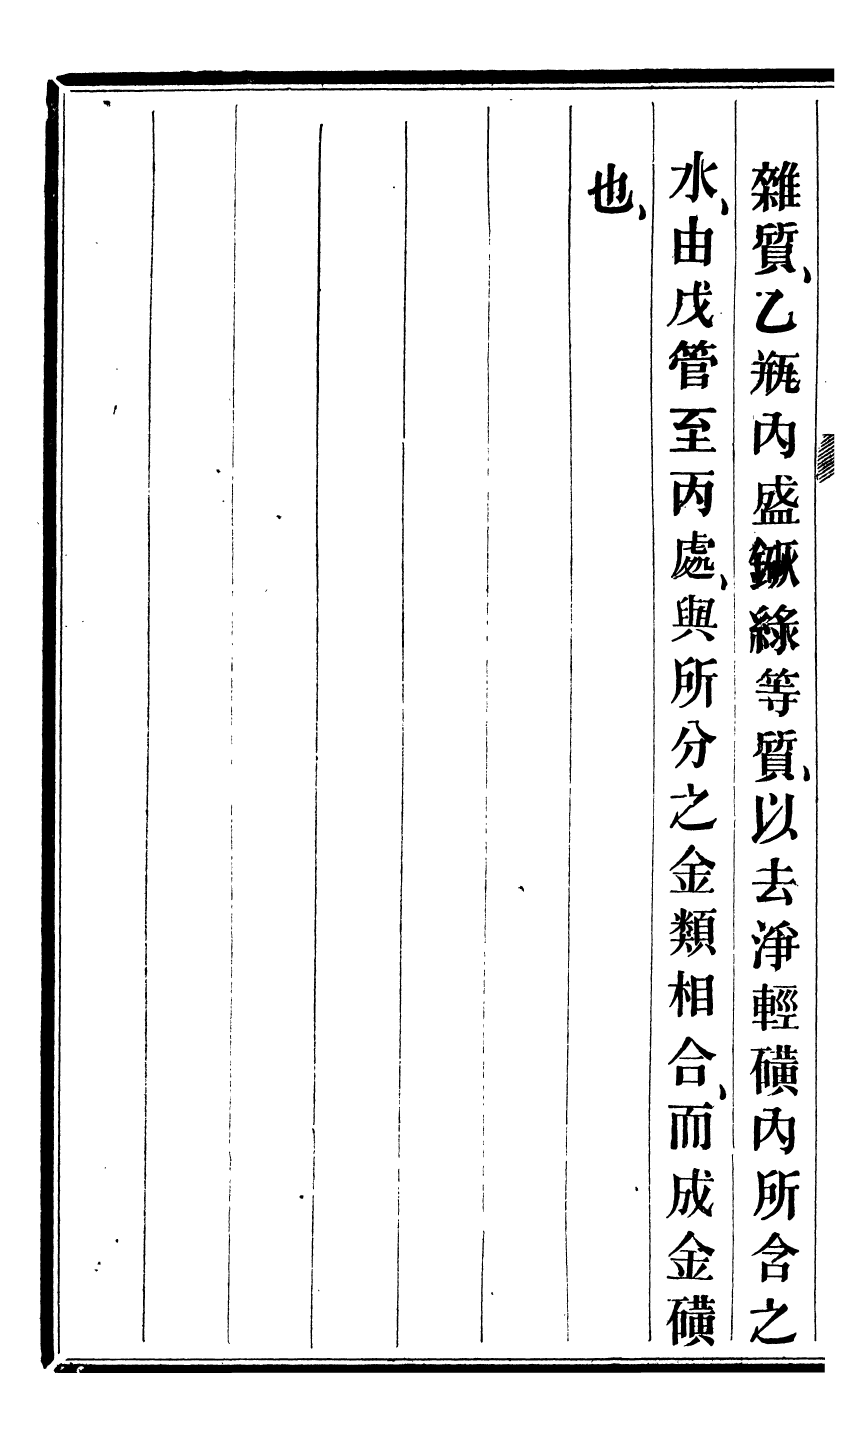 雜質、乙瓶內盛綠等質、以去淨輕磺內所含之
水、由戊管至丙處、與所分之金類相合、而成金磺
也、